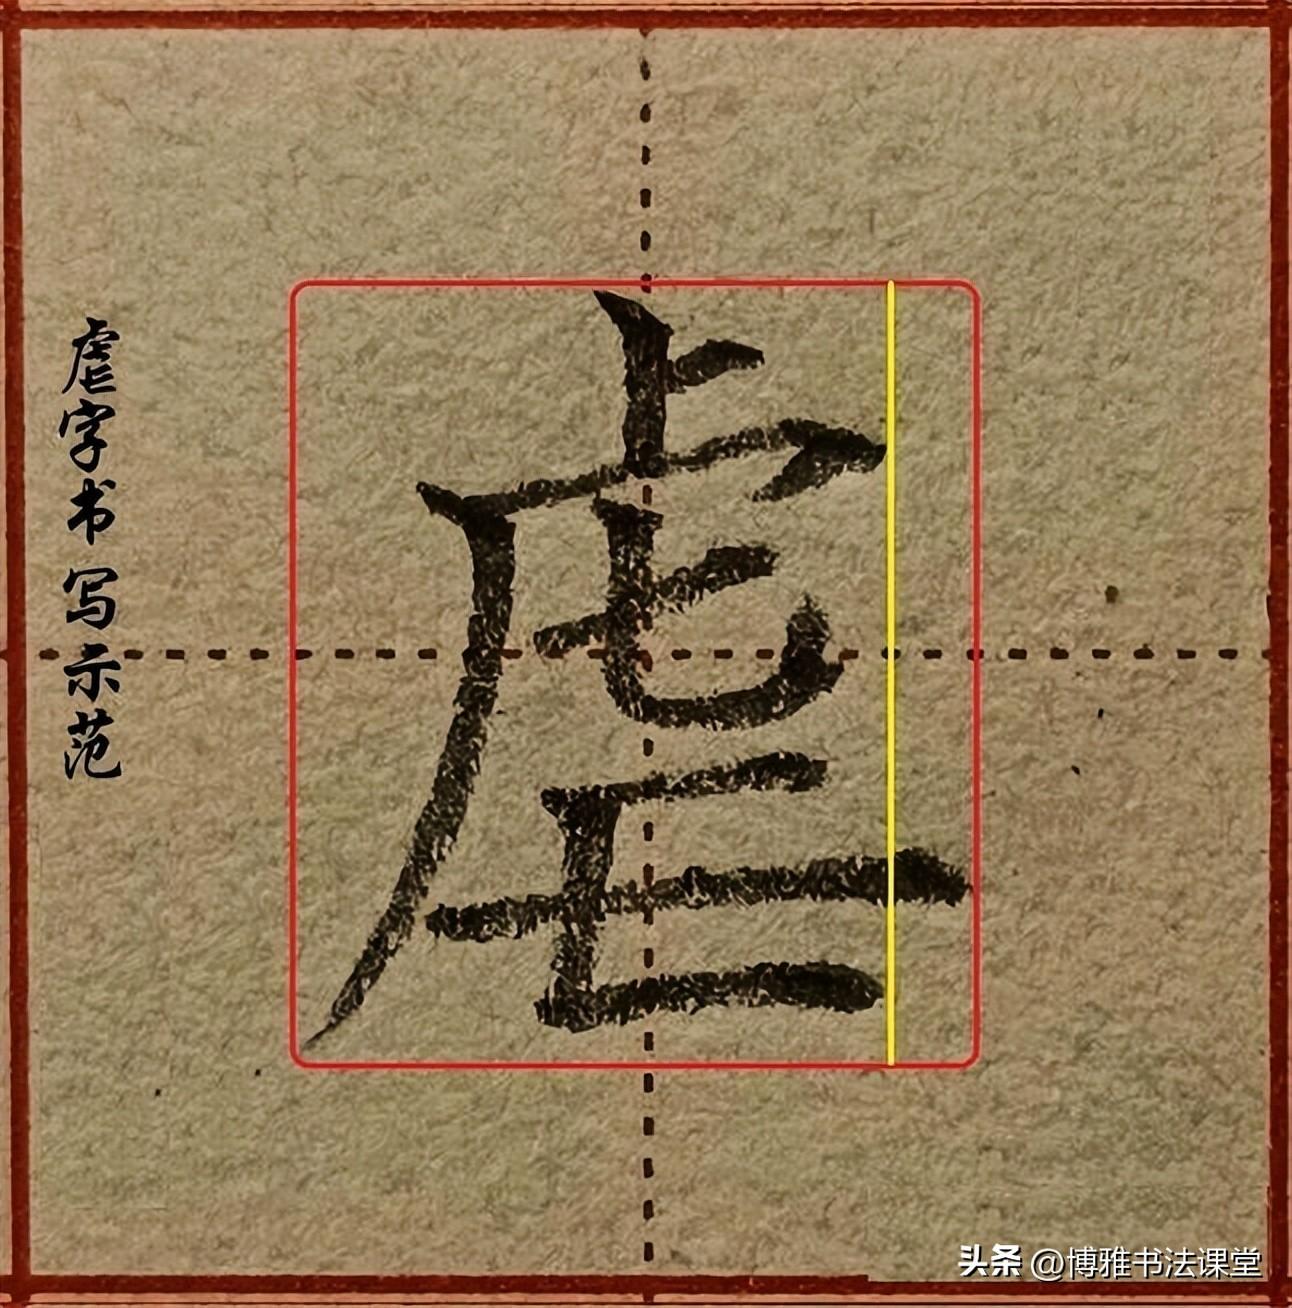 虐字书写示范
虐
头条 @博雅书法课堂